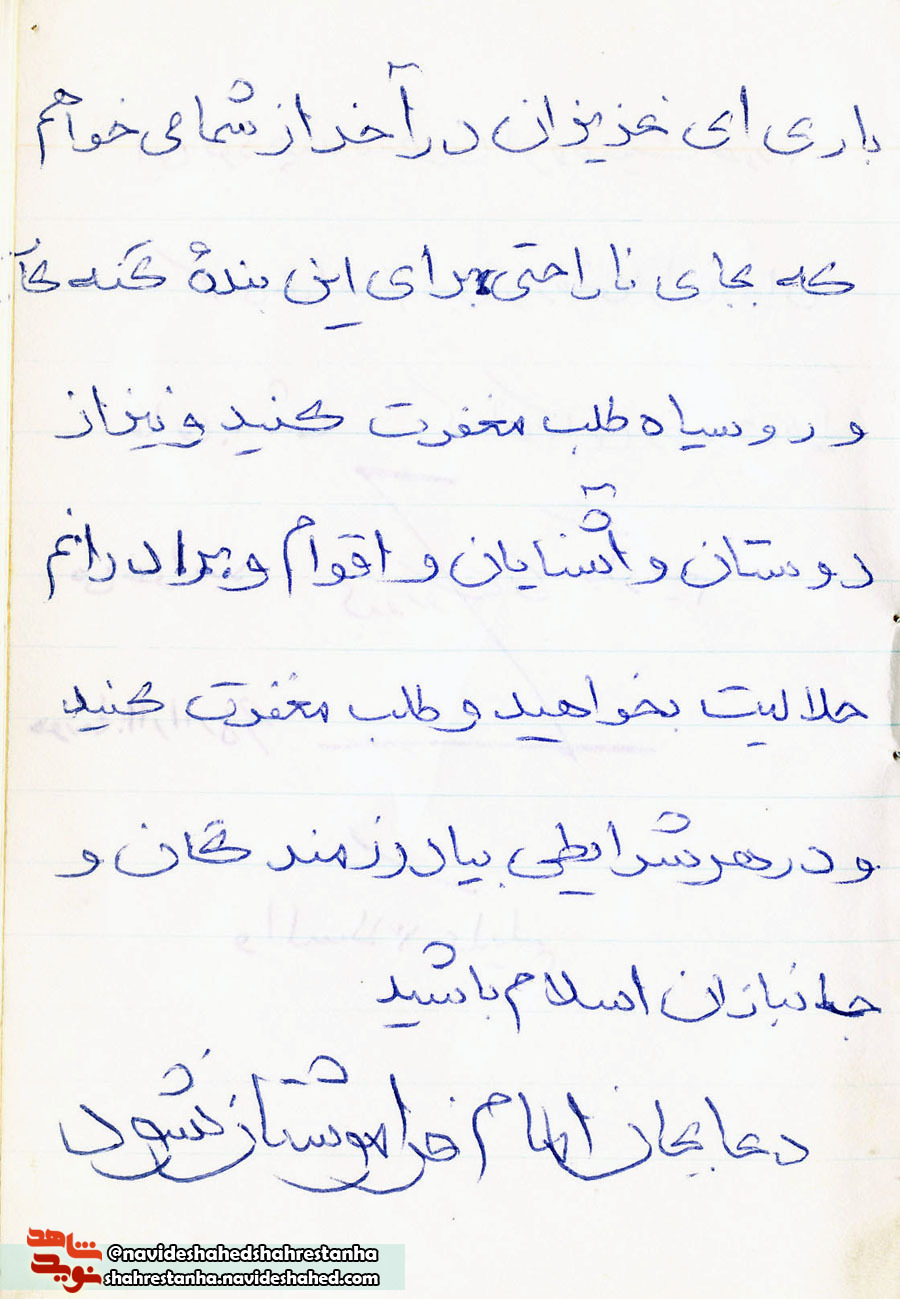 باری ای عزیزان در آخر از شما می خواهم
که بجای ناراحتی برای این بندهٔ گنه کار
و رو سیاه طلب مغفرت کنید و نیز از
دوستان و آشنایان و اقوام و برادرانم
حلالیت بخواهید و طلب مغفرت کنید
و در هر شرایطی بیاد رزمندگان و
جانبازان اسلام باشید
دعا بجان امام فراموشتان نشود
شاهد
نوید
@navideshahedshahrestanha
shahrestanha.navideshahed.com